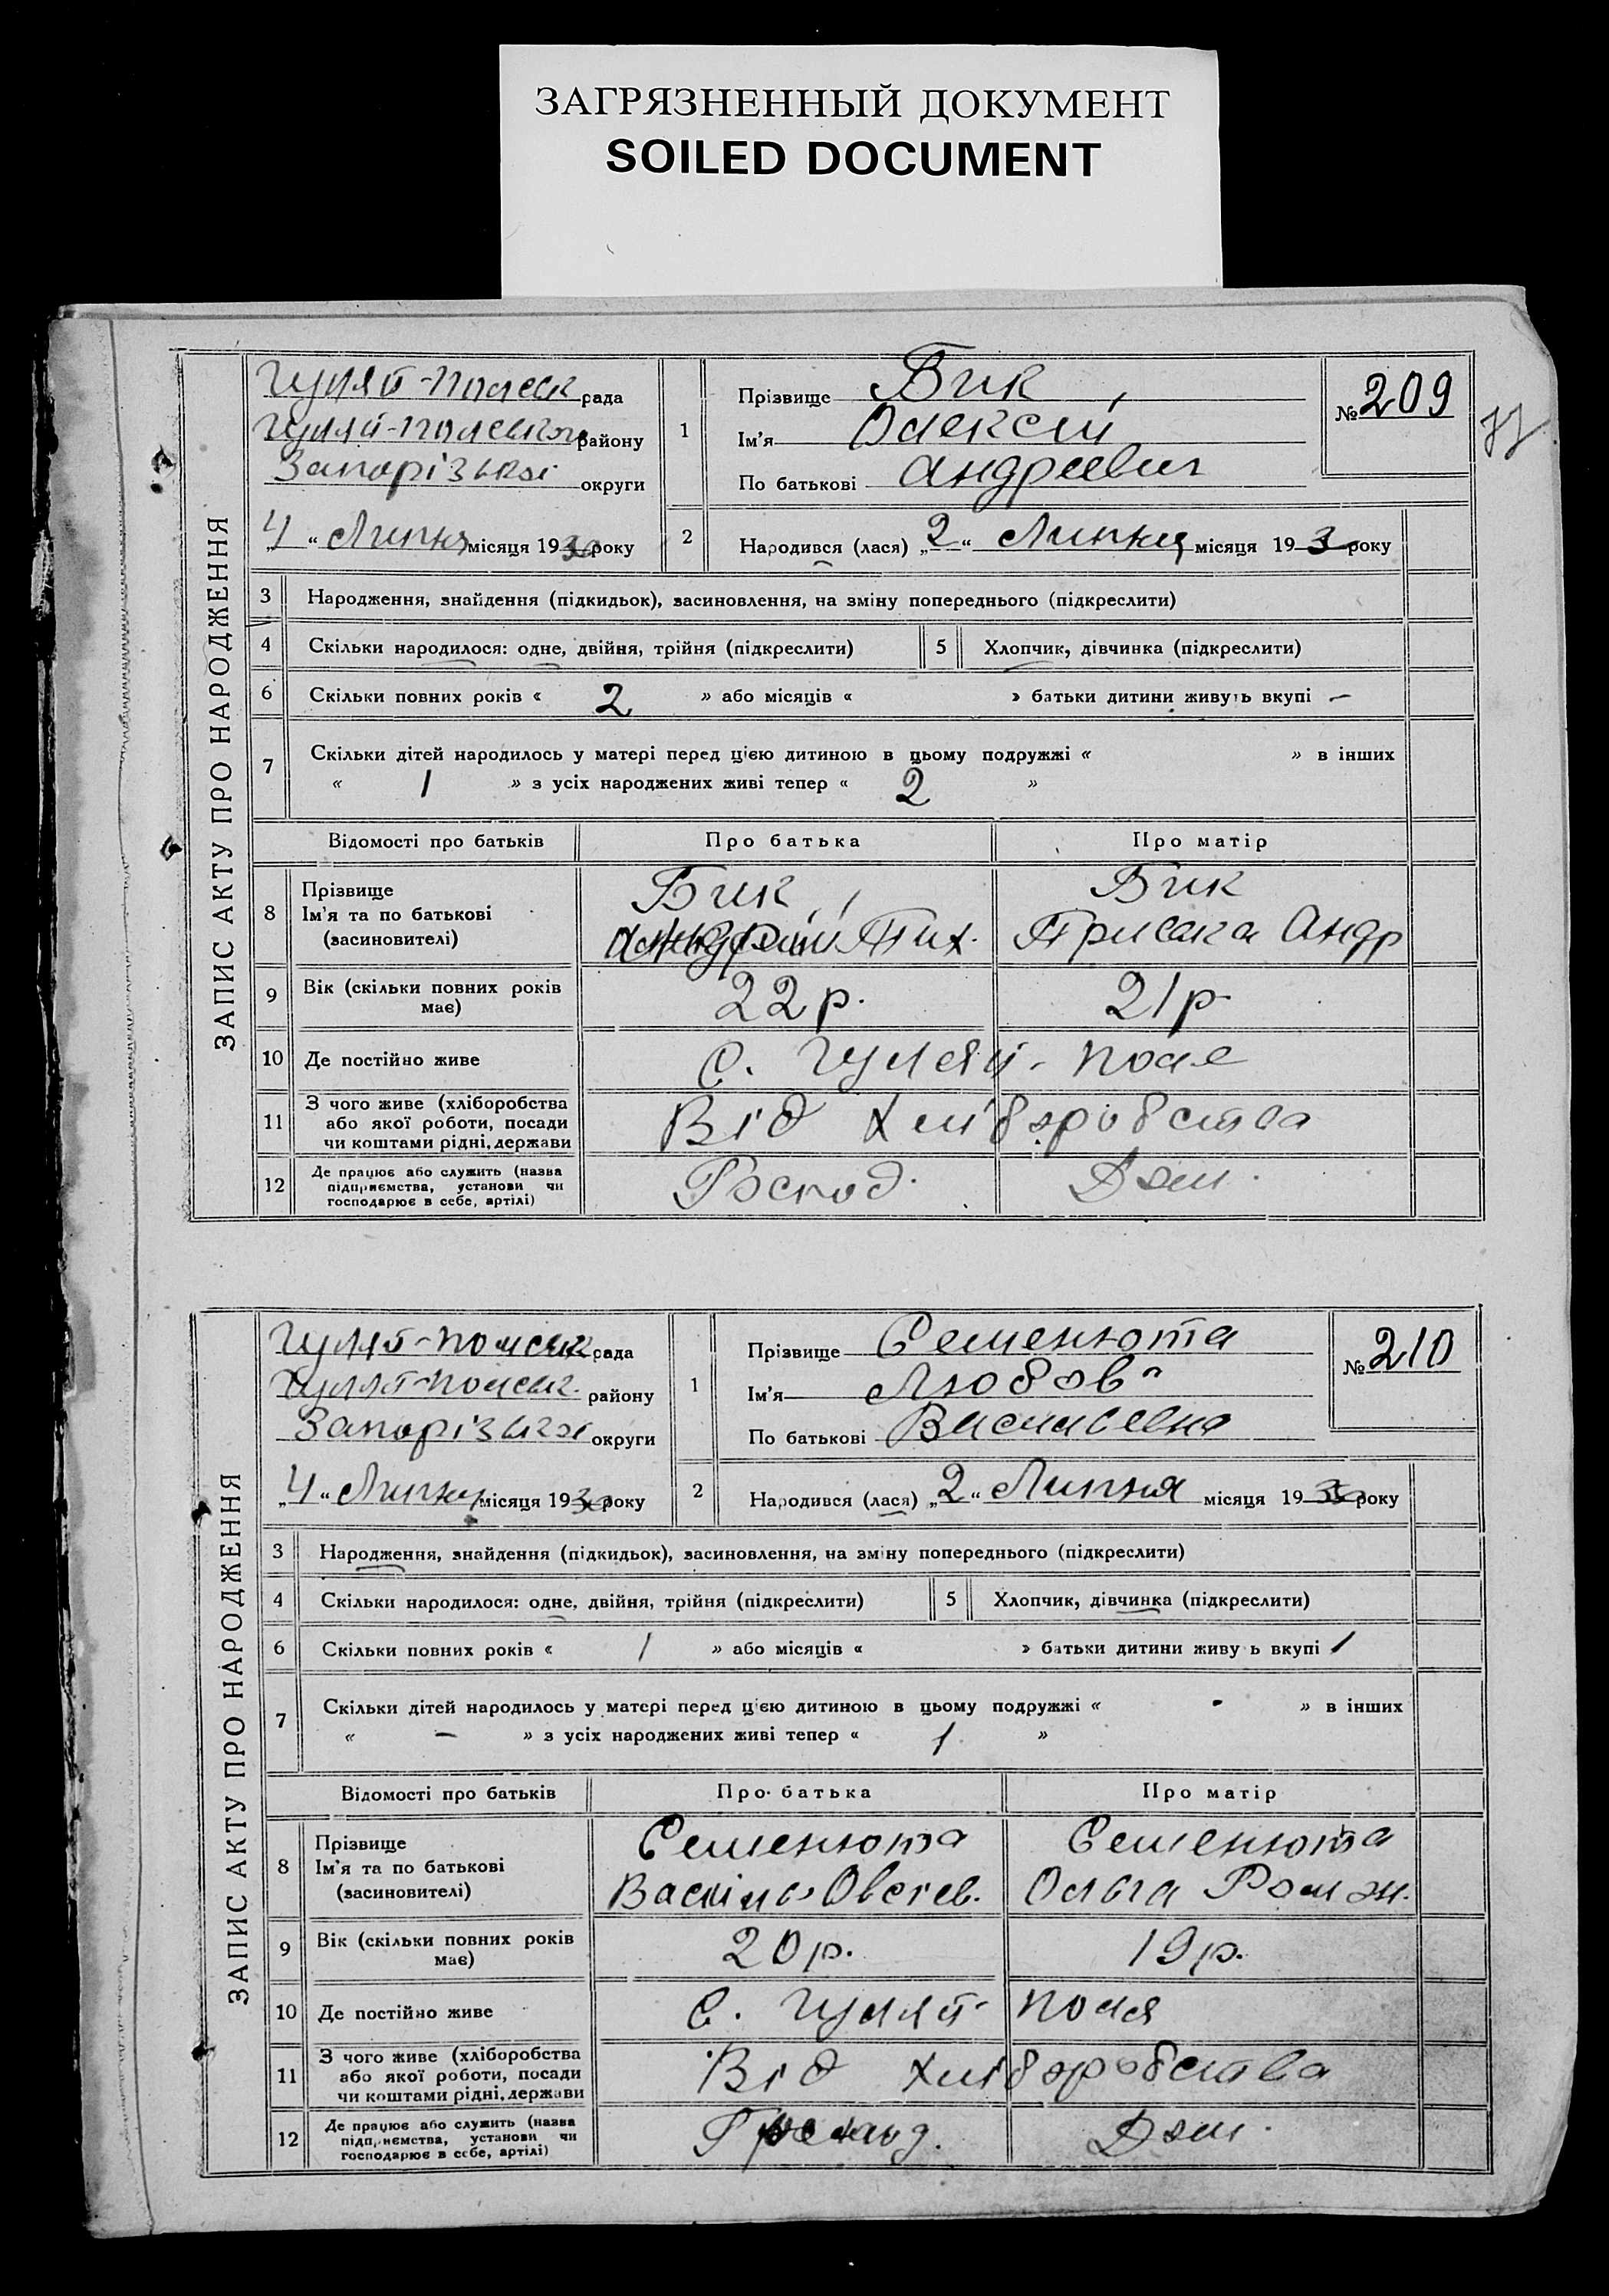 ЗАГРЯЗНЕННЫЙ ДОКУМЕНТ
SOILED DOCUMENT
ЗАПИС АКТУ ПРО НАРОДЖЕННЯ
Гуляй-Полськ рада
Гуляй-Полського району
Запорізької округи
„4“ Липня місяця 1930 року
1
Прізвище Бик
Ім'я Олексій
По батькові Андреевич
№ 209
2
Народився (лася) „2“ Липня місяця 193 року
3 Народження, знайдення (підкидьок), засиновлення, на зміну попереднього (підкреслити)
4 Скільки народилося: одне, двійня, трійня (підкреслити) 5 Хлопчик, дівчинка (підкреслити)
6 Скільки повних років « 2 » або місяців « » батьки дитини живуть вкупі –
7 Скільки дітей народилось у матері перед цією дитиною в цьому подружжі « » в інших
« 1 » з усіх народжених живі тепер « 2 »
Відомості про батьків Про батька Про матір
8 Прізвище
Ім'я та по батькові
(засиновителі)
Бик Бик
Андрій Тих. Андр
9 Вік (скільки повних років має) 22 р. 21 р.
10 Де постійно живе С. Гуляй-Поле
11 З чого живе (хліборобства
або якої роботи, посади
чи коштами рідні, держави
Від хліборобства
12 Де працює або служить (назва
підприємства, установи чи
господарює в себе, артілі)
Господ. Дом.
ЗАПИС АКТУ ПРО НАРОДЖЕННЯ
Гуляй-Полськ рада
Гуляй-Польск. району
Запорізької округи
„4“ Липня місяця 1930 року
1
Прізвище Семенюта
Ім'я Любовь
По батькові Васильевна
№ 210
2
Народився (лася) „2“ Липня місяця 1930 року
3 Народження, знайдення (підкидьок), засиновлення, на зміну попереднього (підкреслити)
4 Скільки народилося: одне, двійня, трійня (підкреслити) 5 Хлопчик, дівчинка (підкреслити)
6 Скільки повних років « 1 » або місяців « » батьки дитини живу ь вкупі 1
7 Скільки дітей народилось у матері перед цією дитиною в цьому подружжі « - » в інших
« – » з усіх народжених живі тепер « 1 »
Відомості про батьків Про батька Про матір
8 Прізвище
Ім'я та по батькові
(засиновителі)
Семенюта Семенюта
Василь Овсієв. Ольга Роман.
9 Вік (скільки повних років має) 20 р. 19 р.
10 Де постійно живе С. Гуляй-Поля
11 З чого живе (хліборобства
або якої роботи, посади
чи коштами рідні, держави
Від хліборобства
12 Де працює або служить (назва
підприємства, установи чи
господарює в себе, артілі)
Дом.